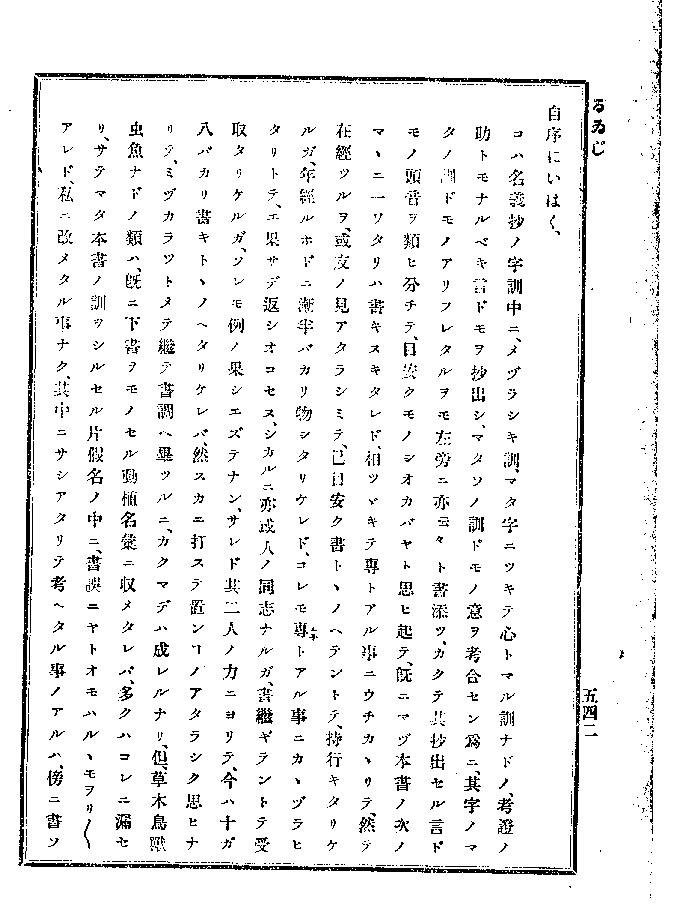 るゐじ
自序にいはく、
コハ名義抄ノ字訓中ニ、メヅラシキ訓、マタ字ニツキテ心トマル訓ナドノ、考證ノ
助トモナルベキ言ドモヲ抄出シ、マタソノ訓ドモノ意ヲ考合セン爲ニ、其字ノマ
タノ訓ドモノアリフレタルヲモ左旁ニ亦云々ト書添ツ、カクテ其抄出セル言ド
モノ頭音ヲ類ヒ分チテ、目安クモノシオカバヤト思ヒ起テ、既ニマヅ本書ノ次ノ
マヽニ一ワタリハ書キヌキタレド、相ツヾキテ專トアル事ニウチカヽリテ、然テ
在經ツルヲ、或友ノ見アタラシミテ、己目安ク書トヽノヘテントテ、持行キタリケ
ルガ、年經ルホドニ漸半バカリ物シタリケレド、コレモ專トアル事ニカヽヅラヒ
タリトテ、エ果サデ返シオコセヌ、シカルニ亦或人ノ同志ナルガ、書繼ギテントテ受
取タリケルガ、ソレモ例ノ果シエズテナン、サレド其二人ノ力ニヨリテ、今ハ十ガ
八バカリ書キトヽノヘタリケレバ、然スカニ打ステ置ンヿノアタラシク思ヒナ
リテ、ミヅカラツトメテ繼テ書調ヘ畢ツルニ、カクマデハ成レルナリ、但、草木鳥獸
虫魚ナドノ類ハ、既ニ下書ヲモノセル動植名彙ニ收メタレバ、多クハコレニ漏セ
リ、サテマタ本書ノ訓ヲシルセル片假名ノ中ニ、書誤ニヤトオモハルヽモヲリ〱
アレド、私ニ改メタル事ナク、其中ニサシアタリテ考ヘタル事ノアルハ、傍ニ書ソ
五四二